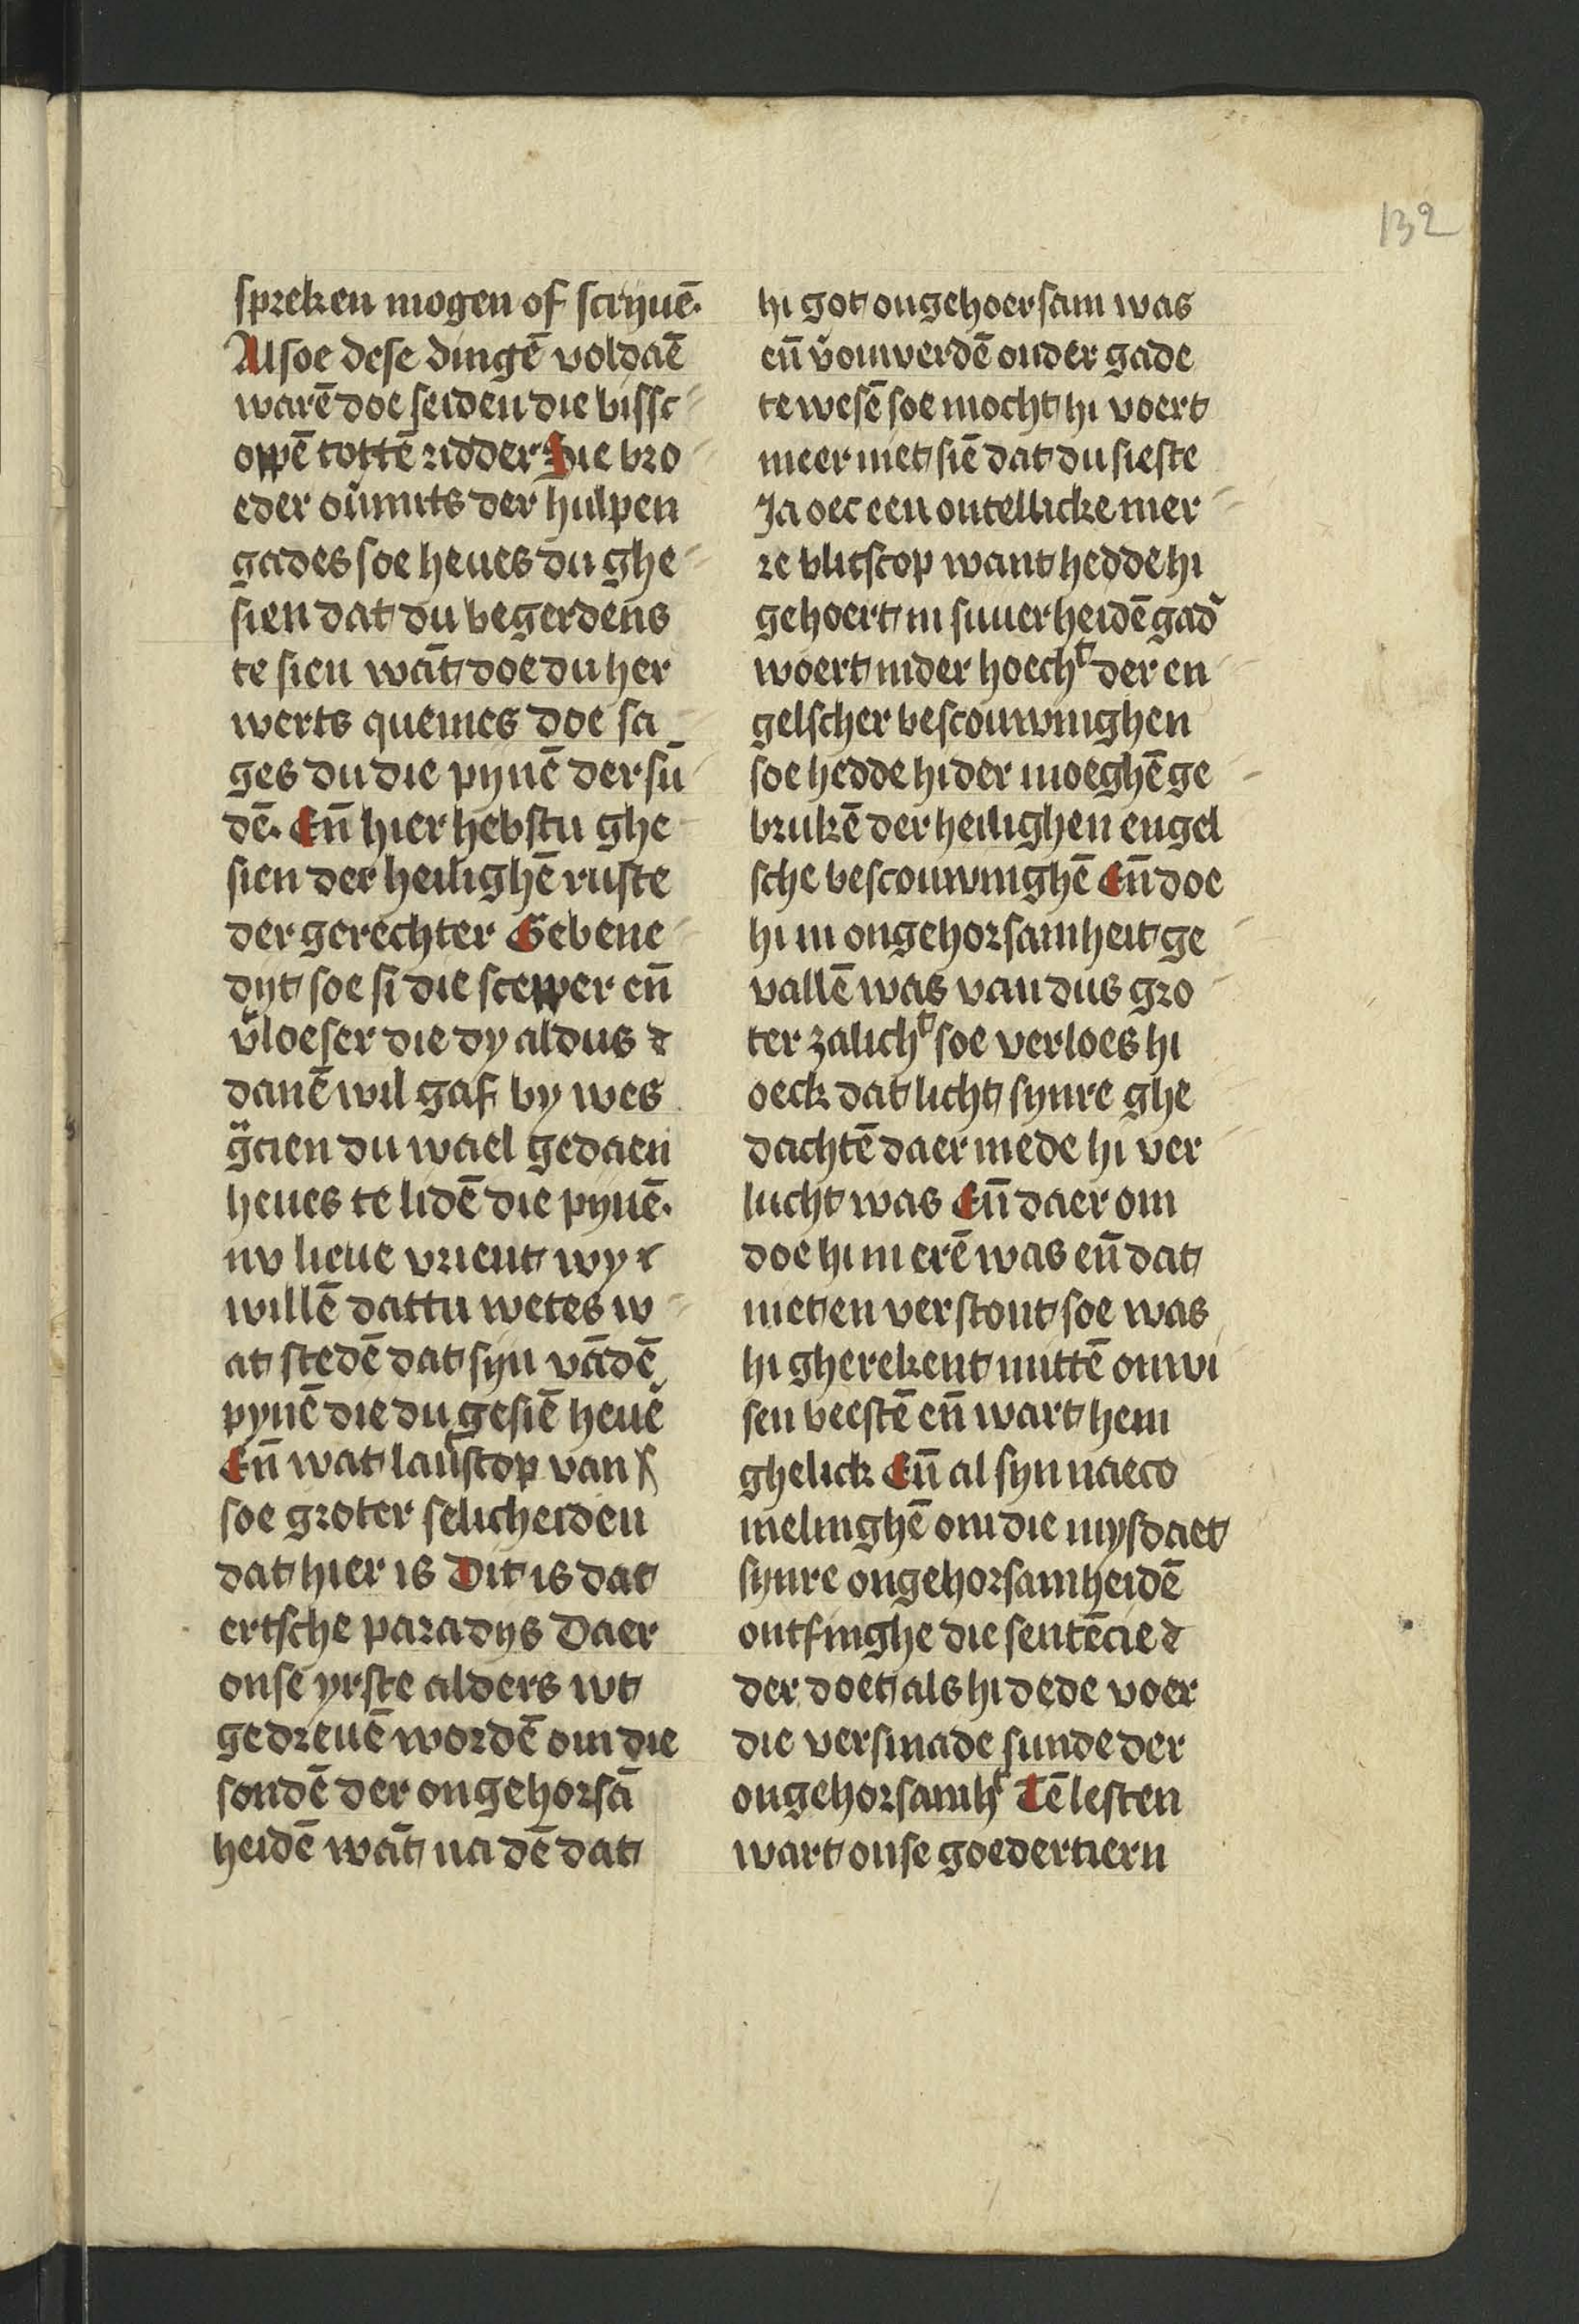 132
spreken mogen of scrijuē.
Alsoe dese dingē voldaē
warē doe seiden die bissc
oppē tottē ridder Sie bro
eder ou̇mits der hulpen
gades soe heues du ghe
sien dat du begerdens
te sien wāt doe du her
werts quemes doe sa
ges du die pijnē der sū
dē. Eñ hier hebstu ghe
sien der heilighē ruste
der gerechter Gebene
dijt soe si die scepper eñ
v̇loeser die dy aldus
danē wil gaf by wes
gͣcien du wael gedaen
heues te lidē die pijnē.
nv lieue vrient wy
willē dattu wetes w
at stedē dat sijn vādē
pynē die du gesiē heuē
Eñ wat lantscop van
soe groter selicheiden
dat hier is Dit is dat
ertsche paradijs Daer
onse yrste alders wt
gedreuē wordē om die
sondē der ongehorsā
heidē wāt na dē dat
hi got ongehoersam was
eñ v̇onwerdē onder gade
te wesē soe mocht hi voert
meer niet siē dat du sieste
Ja oec een ontellicke mer
re blitscop want hedde hi
gehoert in suuerheidē gad̾
woert in der hoechᵗ der en
gelscher bescouwinghen
soe hedde hi der moeghē ge
brukē der heilighen engel
sche bescouwinghē Eñ doe
hi in ongehorsamheit ge
vallē was van dus gro
ter zalichᵗ soe verloes hi
oeck dat licht sijnre ghe
dachtē daer mede hi ver
lucht was Eñ daer om
doe hi in erē was eñ dat
niet en verstont soe was
hi gherekent mittē onwi
sen beestē eñ wart hem
ghelick Eñ al sijn naeco
melinghē om die mysdaet
sijnre ongehorsamheidē
ontfinghe die sentēcie
der doet als hi dede voer
die versmade sunde der
ongehorsamhᵗ Tē lesten
wart onse goedertiern